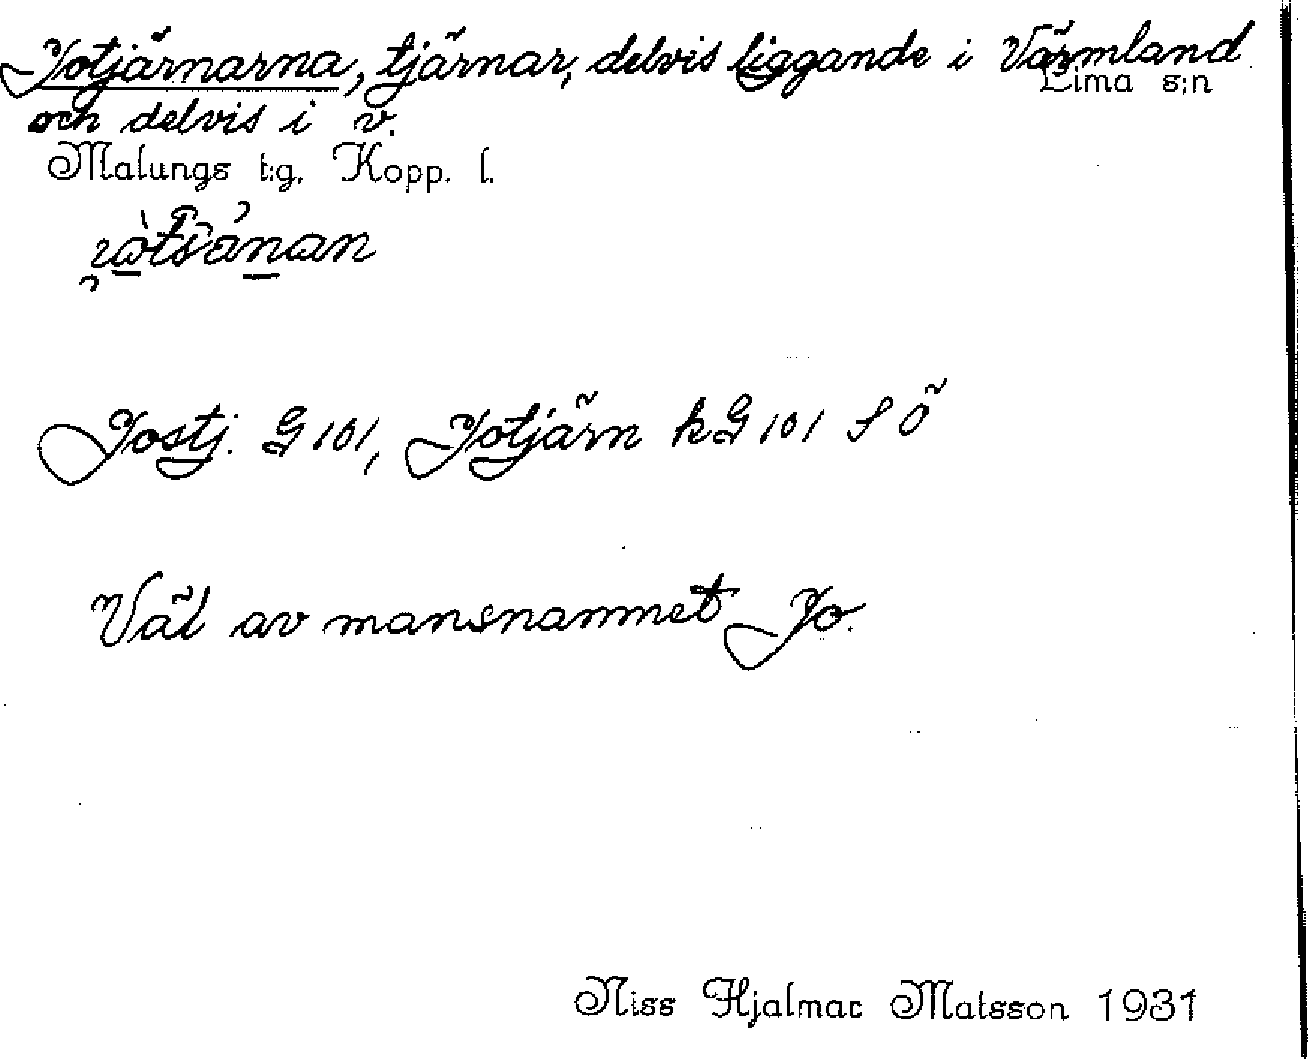 Jotjärnarna, tjärnar, delvis liggande i Värmland
Lima s:n
och delvis i v.
Malungs t:g. Kopp. l.
Jostj. G 101, Jotjärn kG 101 S Ö
Väl av mansnamnet Jo.
Niss Hjalmar Matsson 1931